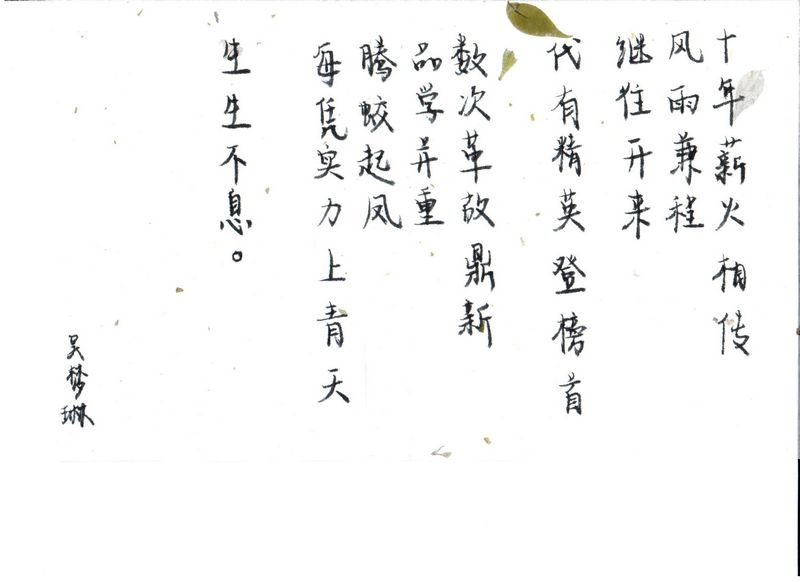 十年薪火相传
风雨兼程
继往开来
代有精英登榜首
数次革故鼎新
品学并重
腾蛟起凤
每凭实力上青天
生生不息。
吴梦琳